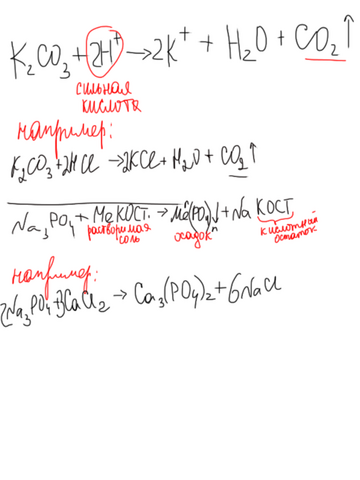 K₂CO₃ + 2H⁺ → 2K⁺ + H₂O + CO₂↑
сильная
кислота
например:
K₂CO₃ + 2HCl → 2KCl + H₂O + CO₂↑
Na₃PO₄ + MeКОСТ. → Me(PO₄)ₙ↓ + Na КОСТ
растворимая соль осадок кислотный остаток
например:
2Na₃PO₄ + 3CaCl₂ → Ca₃(PO₄)₂ + 6NaCl